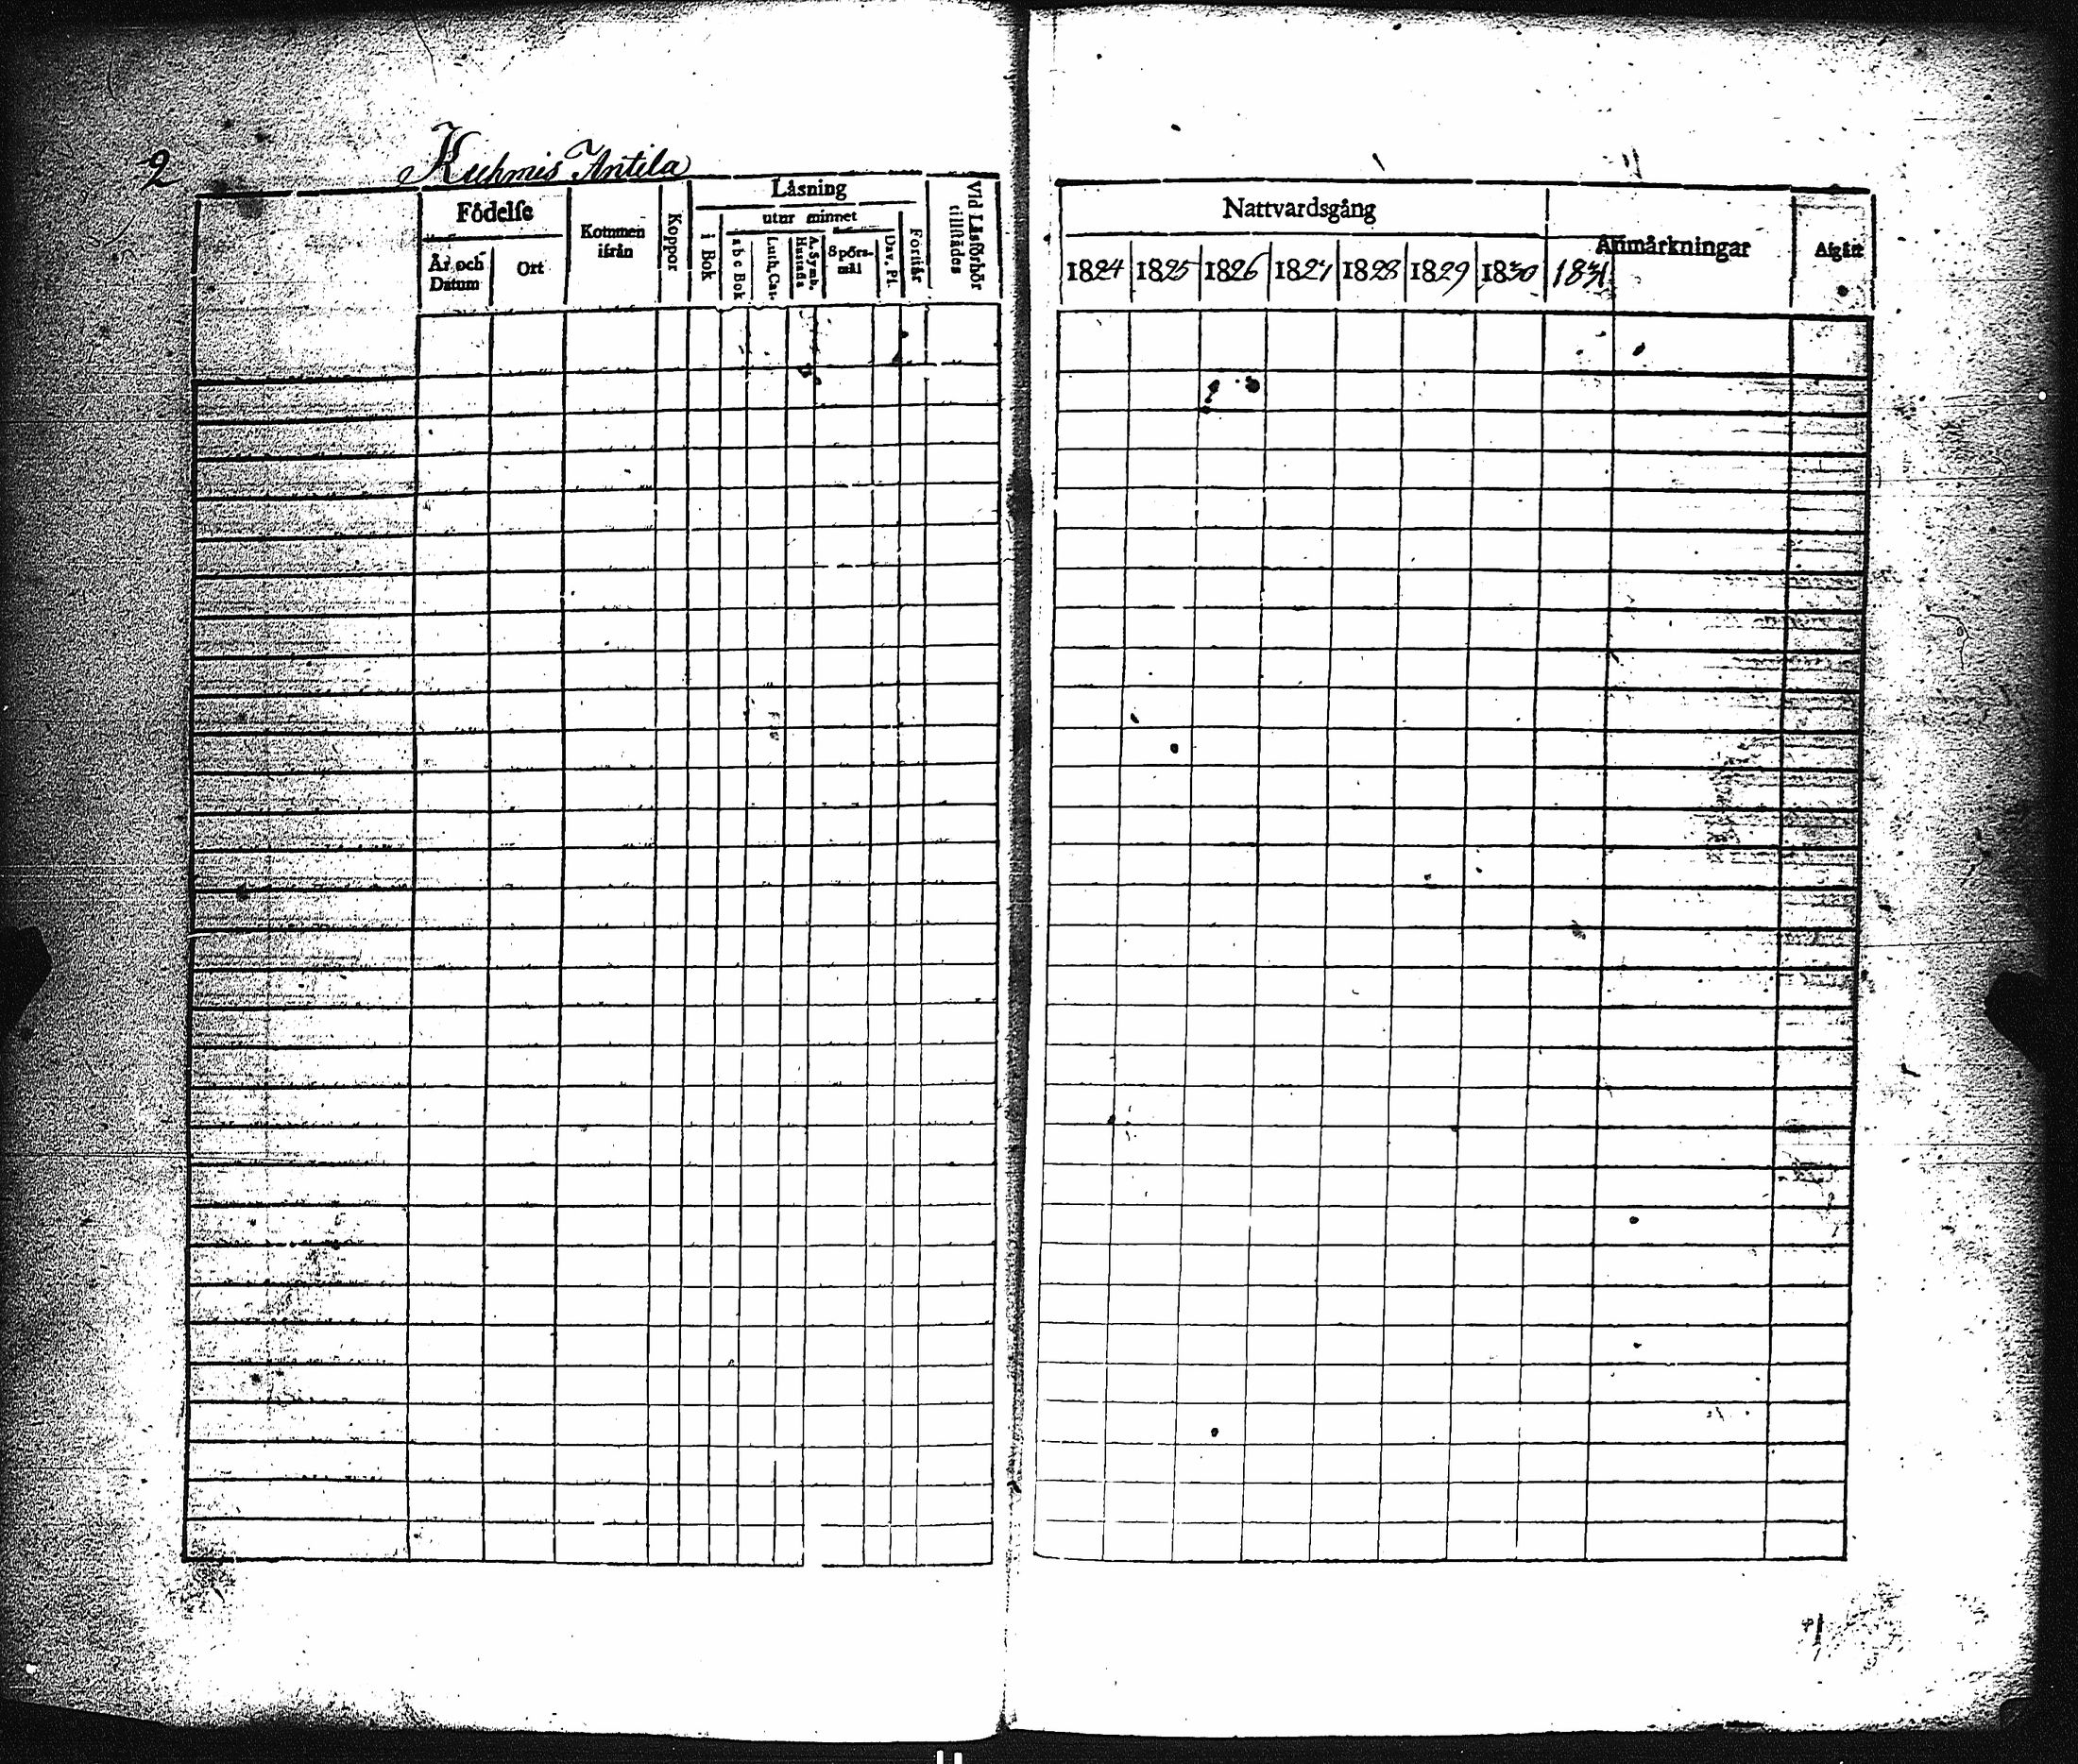 2
Kuhmis Antila
Födelse
År och Datum
Ort
Kommen ifrån
Koppor
Läsning
i Bok
utur minnet
a b c Bok
Luth. Cat.
A. Symb. Hustafla
Spörsmål
Dav. Ps.
Förstår
Vid Läsförhör tillstädes
Nattvardsgång
1824 1825 1826 1827 1828 1829 1830 1831
Anmärkningar
Afgått